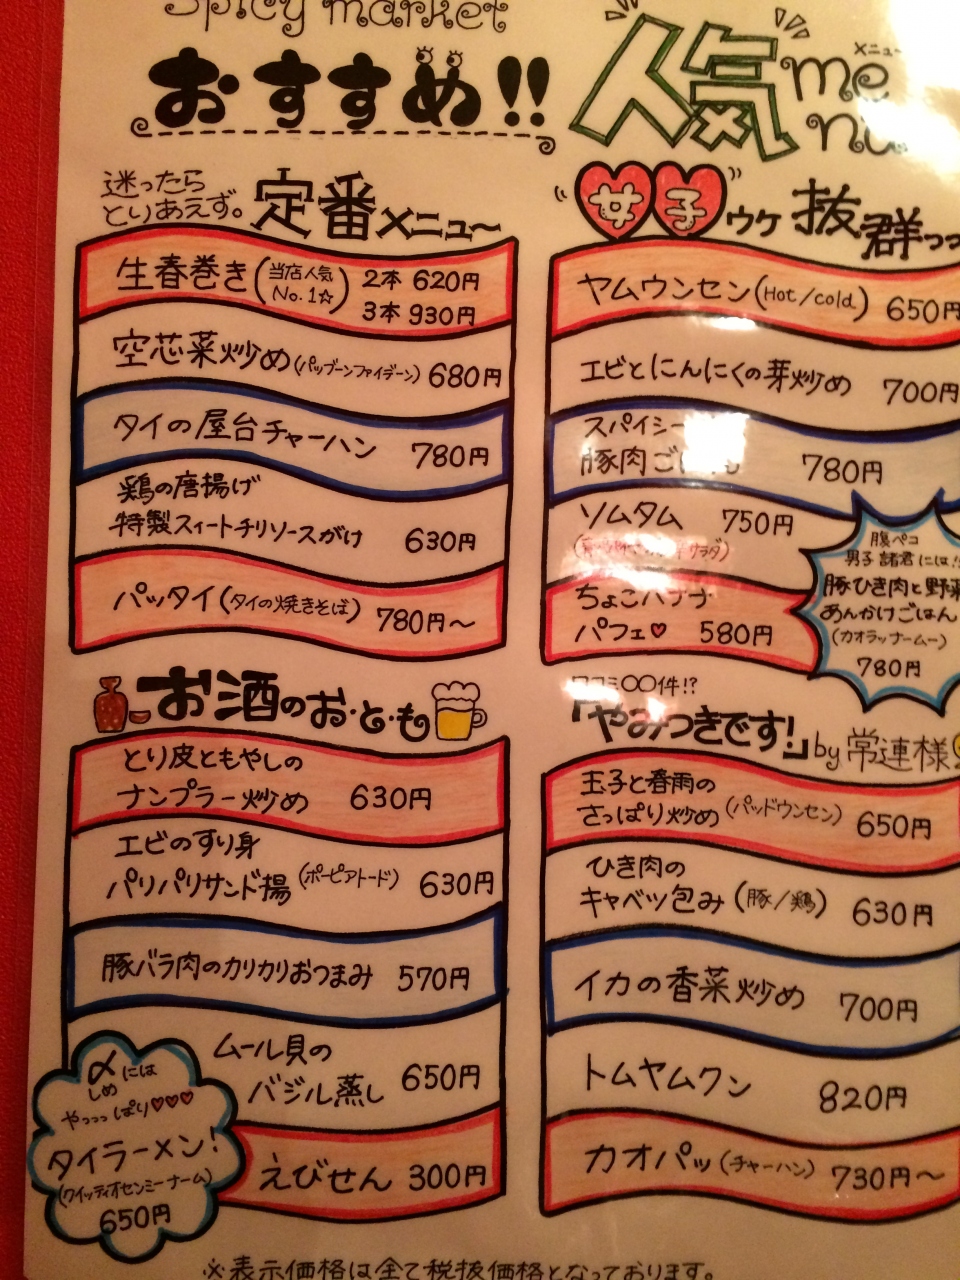 Spicy market
おすすめ!!
人気
メニュー
me
nu
迷ったら
とりあえず。
定番メニュ〜
生春巻き(当店人気No.1☆) 2本 620円
3本 930円
空芯菜炒め(パップーンファイデーン) 680円
タイの屋台チャーハン 780円
鶏の唐揚げ
特製スィートチリソースがけ 630円
パッタイ(タイの焼きそば) 780円〜
お酒のお・と・も
とり皮ともやしの
ナンプラー炒め 630円
エビのすり身
パリパリサンド揚(ポーピアトード) 630円
豚バラ肉のカリカリおつまみ 570円
ムール貝の
バジル蒸し 650円
えびせん 300円
〆には
しめ
やっっっぱり♡♡♡
タイラーメン!
(クイッティオセンミーナーム)
650円
女子ウケ 抜群っっ
ヤムウンセン(Hot/cold) 650円
エビとにんにくの芽炒め 700円
スパイシー
豚肉ご 780円
ソムタム 750円
サラダ)
ちょこバナナ
パフェ♡ 580円
腹ペコ
男子諸君には!!
豚ひき肉と野菜
あんかけごはん
(カオラッナームー)
780円
クチコミ〇〇件!?
「やみつきです!」by 常連様
玉子と春雨の
さっぱり炒め(パッドウンセン) 650円
ひき肉の
キャベツ包み(豚/鶏) 630円
イカの香菜炒め 700円
トムヤムクン 820円
カオパッ(チャーハン) 730円〜
※表示価格は全て税抜価格となっております。